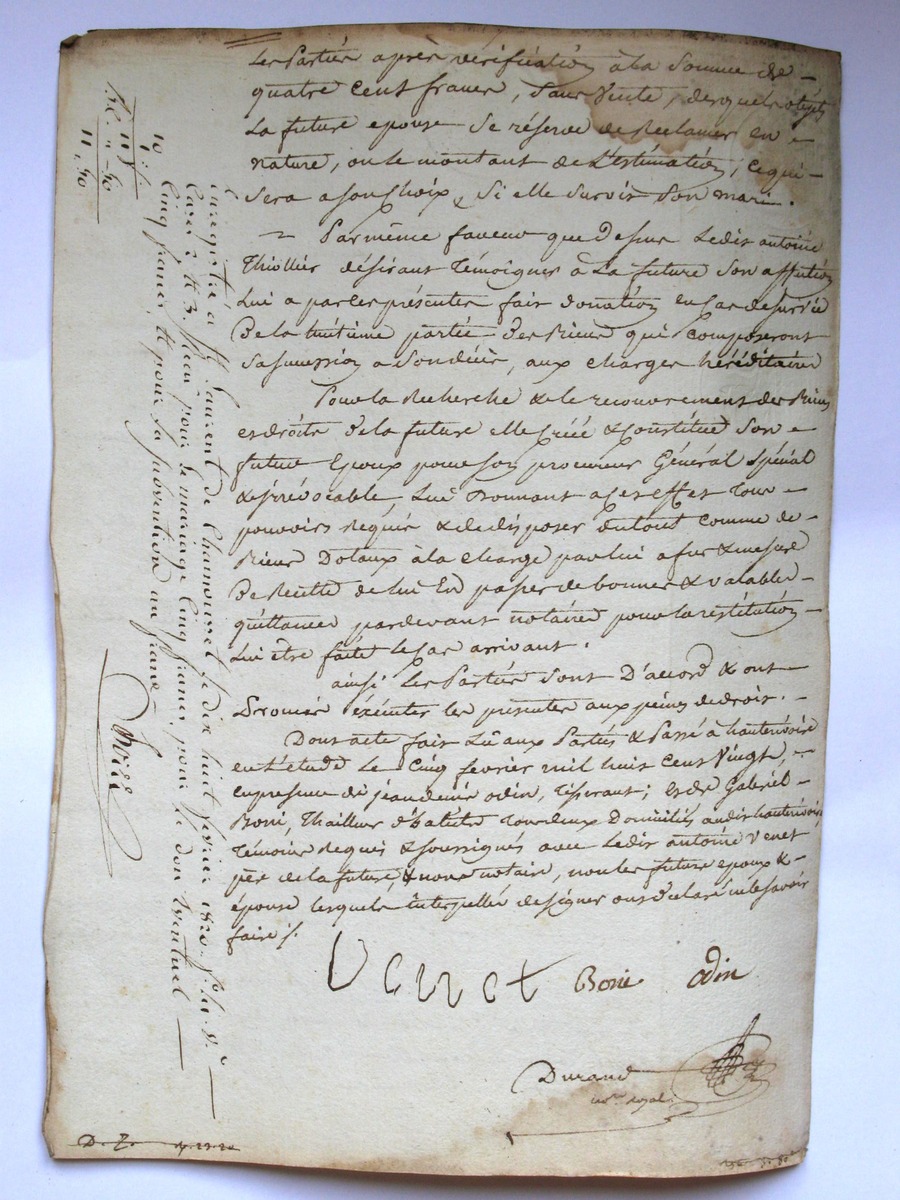 les Parties après vérification à la Somme de
quatre cent francs, Sans Vente, desquels objets
La future epouse Se réserve de Reclamer en
nature, ou le montant de L'estimation, ce qui
Sera a son Choix, Si elle survit Son mari.
Par même faveur que Dessus Ledit antoine
Thiollier désirant Témoigner à La future Son affection
Lui a par ces présentes fait donation en Cas de survie
De la huitieme partie des Biens qui Composeront
Sa succession a Son décès, aux charges héréditaires
Pour la Recherche & le recouvrement des Biens
et droits de la future elle Créé & Constitue Son
futur Epoux pour Son procureur Général Spécial
& irrévocable, Lui Donnant a cet effet Tous
pouvoirs Requis & de disposer du tout comme de
Biens Dotaux à la charge par lui a fur & mesure
De Recette de lui En passer de bonnes & valables
quittances pardevant notaire pour la restitution
Lui être faite le Cas arrivant.
ainsi Les Parties Sont D'accord & ont
Promis exécuter les presentes aux peines de droit.
Dont acte fait Lû aux Parties & Passé à hauterivoire
en L'étude Le Cinq fevrier mil huit cent Vingt,
en presence de jean denis odin, Tisserant; et de Gabriel
Boni, Thailleur d'habits Tous deux Domiciliés audit hauterivoire
Témoins Requis & soussignés avec Ledit antoine Venet
père de la future, & nous notaire, non les future epoux &
épouse lesquels interpellés de signer ont déclaré ne le savoir
faire ./.
Venet Boni odin
Durand
no.re royal
Enregistré à St Laurent de Chamousset le dix huit fevrier 1820. f.o 62 v.o
Cases 2 & 3 Reçu pour le mariage cinq francs, pour le don éventuel
Cinq francs, et pour la subvention un franc
10
1
11
" 50
11, 50